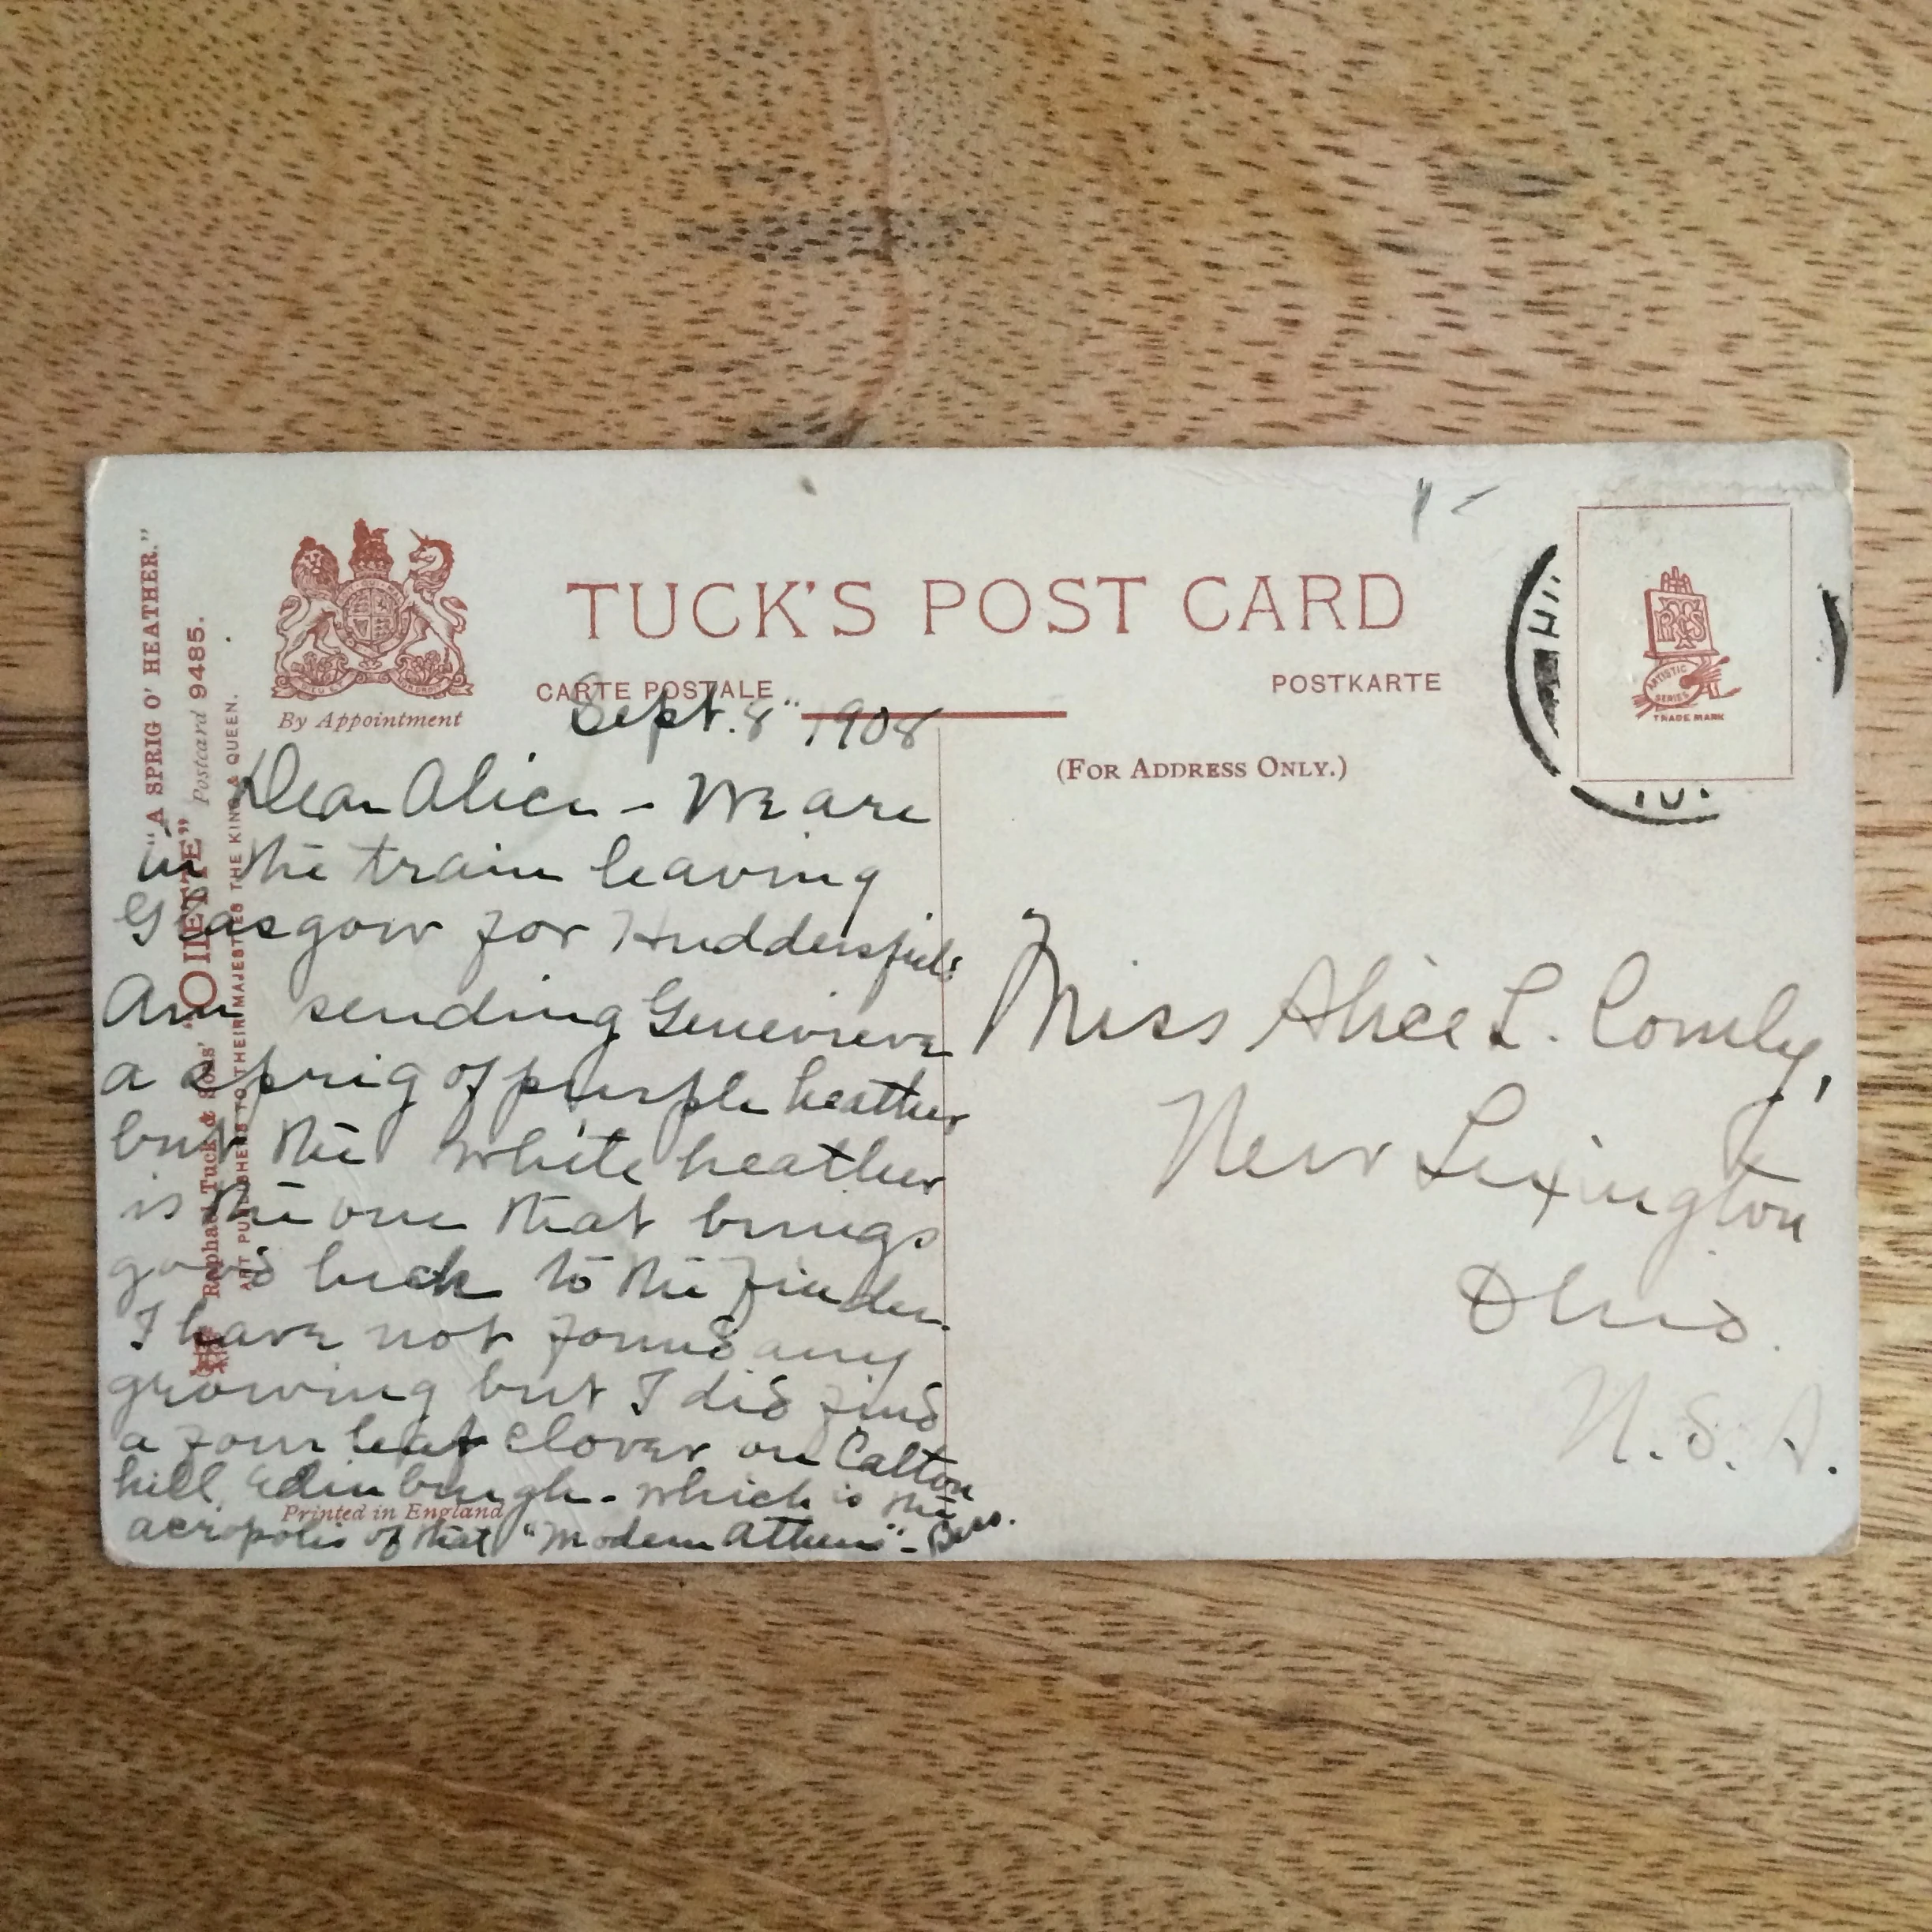 TUCK'S POST CARD
CARTE POSTALE
POSTKARTE
By Appointment
(FOR ADDRESS ONLY.)
"A SPRIG O' HEATHER."
Raphael Tuck & Sons' "OILETTE" Postcard 9485.
ART PUBLISHERS TO THEIR MAJESTIES THE KING & QUEEN.
ARTISTIC
SERIES
TRADE MARK
Sept. 8" 1908
Dear Alice - We are
in the train leaving
Glasgow for Huddersfield
Am sending Genevieve
a sprig of purple heather
but the white heather
is the one that brings
good luck to the finder.
I have not found any
growing but I did find
a four leaf clover on Calton
hill, Edinburgh - which is the
acropolis of that "Modern Athens" - Bess.
Printed in England
Miss Alice L. Comly,
New Lexington
Ohio.
U. S. A.